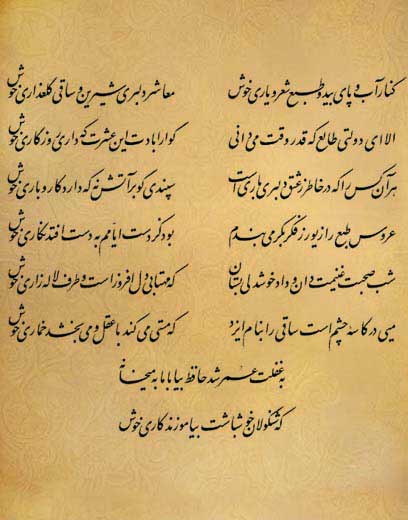 کنار آب و پای بید و طبع شعر و یاری خوش معاشر دلبری شیرین و ساقی گلعذاری خوش
الا ای دولتی طالع که قدر وقت می دانی گوارا بادت این عشرت که داری روزگاری خوش
هر آن کس را که در خاطر ز عشق دلبری باری است سپندی گو بر آتش نه که دارد کار و باری خوش
عروس طبع را زیور ز فکر بکر می بندم بود کز دست ایامم به دست افتد نگاری خوش
شب صحبت غنیمت دان و داد خوشدلی بستان که مهتابی دل افروز است و طرف لاله زاری خوش
میی در کاسهٔ چشم است ساقی را بنام ایزد که مستی می کند با عقل و می بخشد خماری خوش
به غفلت عمر شد حافظ بیا با ما به میخانه
که شنگولان خوش باشت بیاموزند کاری خوش